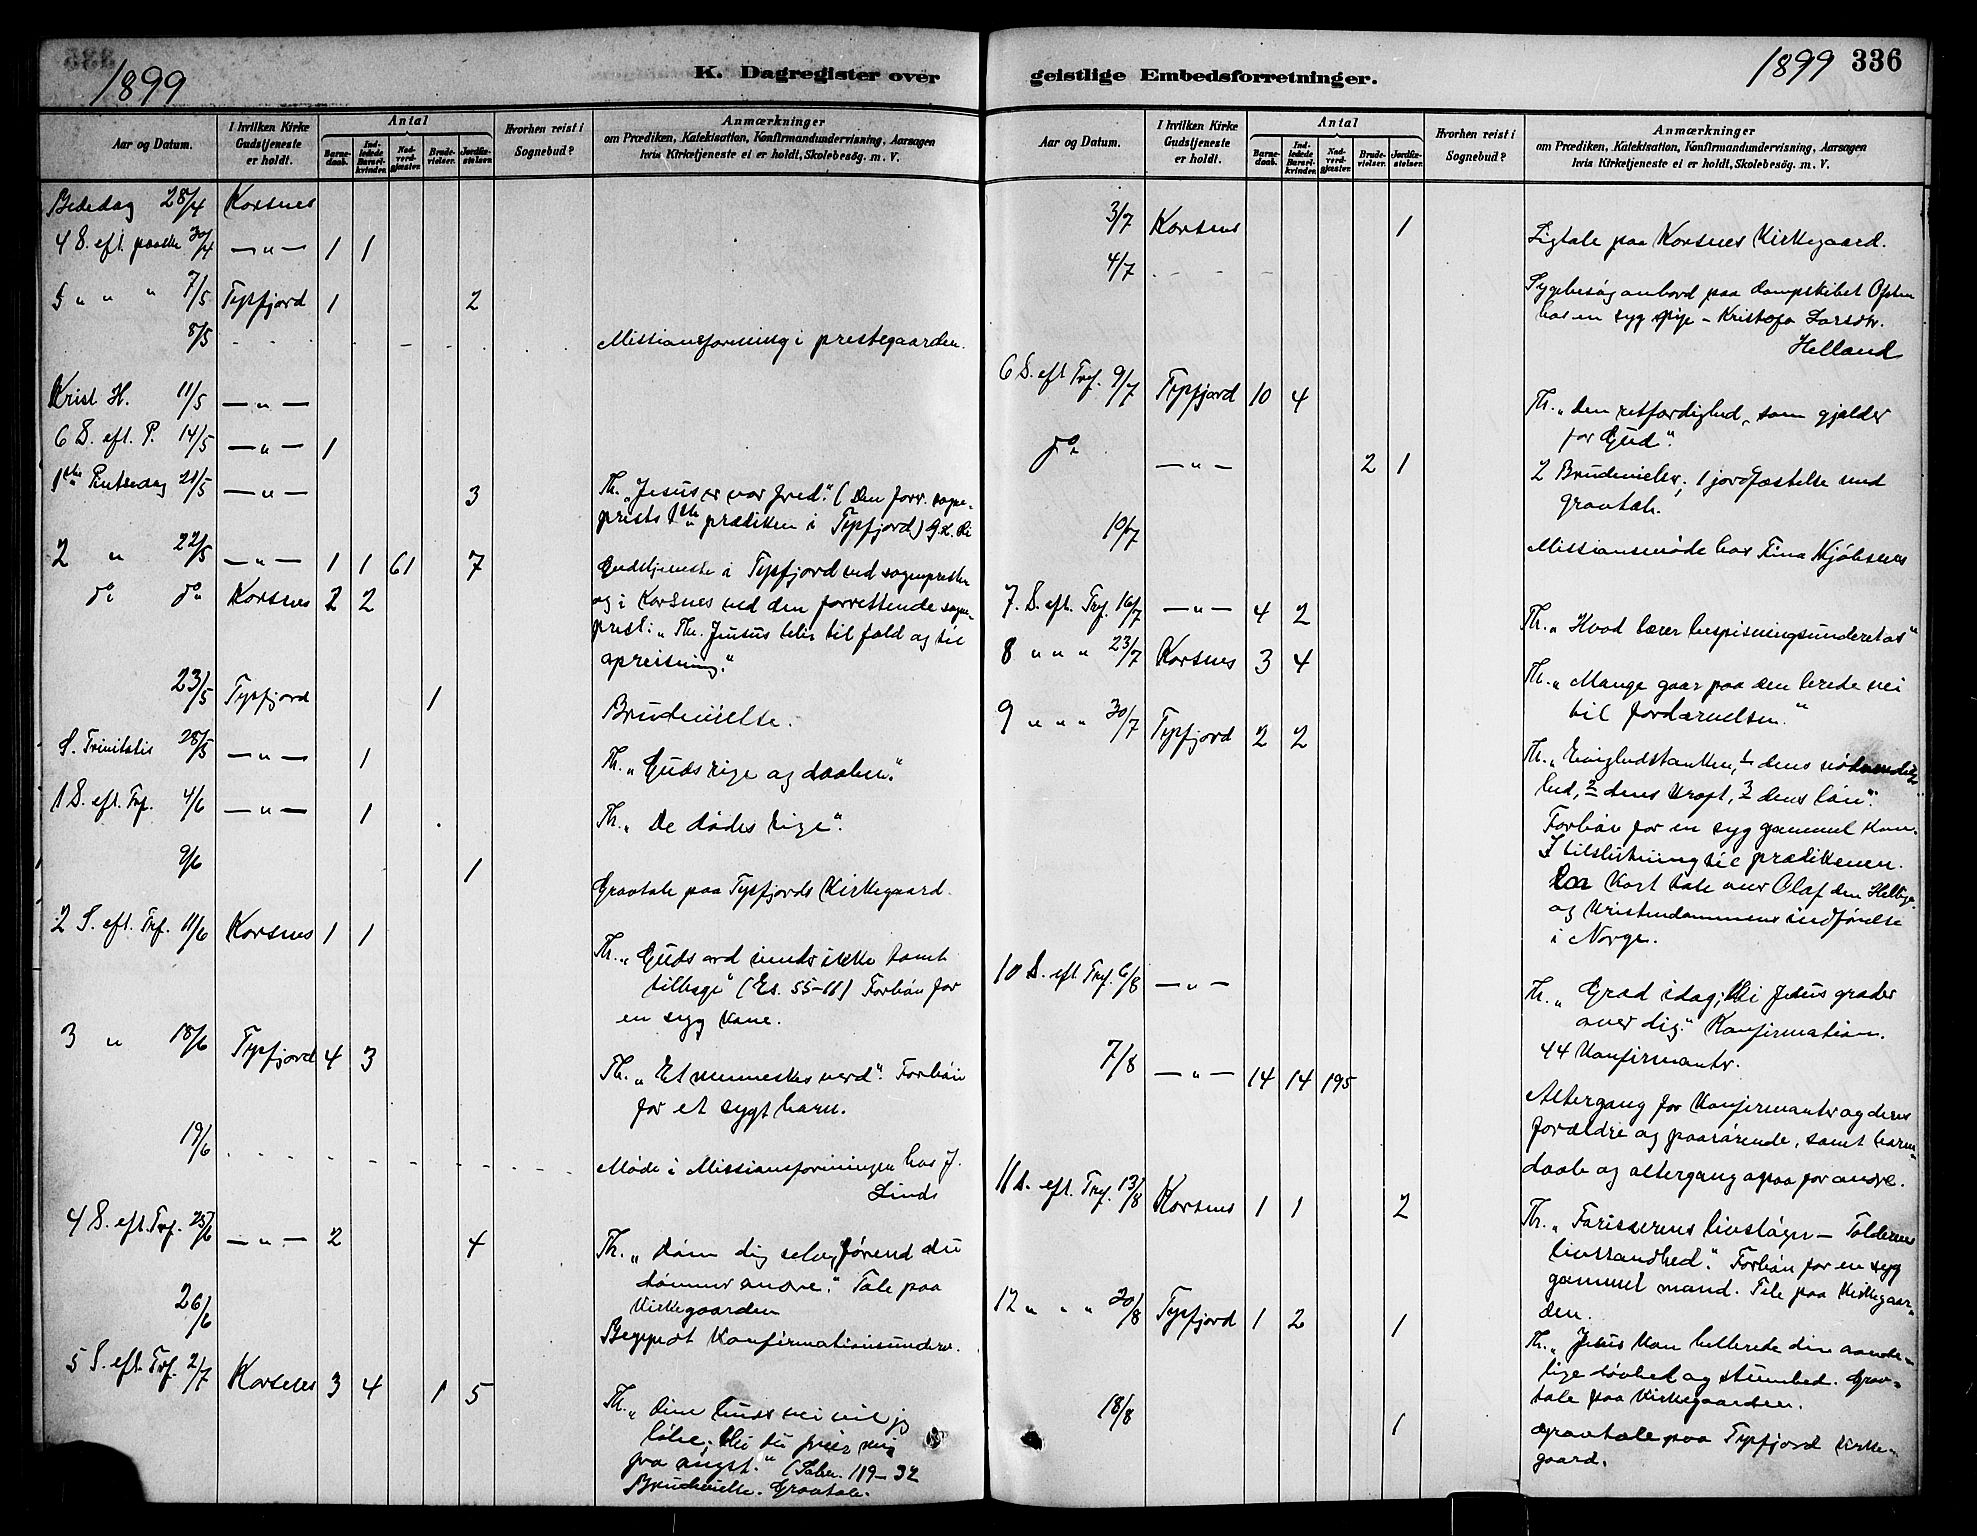 1899
K. Dagregister over
Aar og Datum.
I hvilken Kirke Gudstjeneste er holdt.
Antal
Barnedaab.
Indledede Barselkvinder.
Nadverdgjæster.
Brudevielser.
Jordfæstelser.
Hvorhen reist i Sognebud?
Anmærkninger
om Prædiken, Katekisation, Konfirmandundervisning, Aarsagen
hvis Kirketjeneste ei er holdt, Skolebesög. m. V.
Bededag 28/4 Korsnes
4 S. eft. paaske 30/4 — " — 1 1
5 " " " 7/5 Tysfjord 1 2
8/5 Missionsforening i prestegaarden.
Krist H. 11/5 — " —
6 S. eft. P. 14/5 — " — 1
1ste Pintsedag 21/5 — " — 3 Th. „Jesus er vor fred". (Den forr. sogne-
prests 1ste prædiken i Tysfjord)
2 " 22/5 — " — 1 1 61 7 Gudstjeneste i Tysfjord ved sognepresten
do do Korsnes 2 2 og i Korsnes ved den forrettende sogne-
prest: „Th. Jesus blir til fald og til
opreisning."
23/5 Tysfjord 1 Brudevielse.
S. Trinitatis 28/5 — " — 1 Th. „Guds rige og daaben".
1 S. eft. Tref. 4/6 — " — 1 Th. „De dödes rige".
9/6 1 Gravtale paa Tysfjords Kirkegaard.
2 S. eft. Tref. 11/6 Korsnes 1 1 Th. „Guds ord vender ikke tomt
tilbage" (Es. 55-11) Forbön for
en syg kone.
3 " 18/6 Tysfjord 4 3 Th. „Et menneskes verd". Forbön
for et sygt barn.
19/6 Möde i Missionsforeningen hos J.
Linds
4 S. eft. Tref. 25/6 — " — 2 4 Th. „Döm dig selv, förend du
dömmer andre." Tale paa
Kirkegaarden
26/6 Begyndt Konfirmationsunderv.
5 S. eft. Tref. 2/7 Korsnes 3 4 1 5 Th. „Dine buds vei vil jeg
löbe; thi du frier mig
fra angst." (Salm. 119-32
Brudevielse. Gravtale.
geistlige Embedsforretninger.
1899 336
Aar og Datum.
I hvilken Kirke Gudstjeneste er holdt.
Antal
Barnedaab.
Indledede Barselkvinder.
Nadverdgjæster.
Brudevielser.
Jordfæstelser.
Hvorhen reist i Sognebud?
Anmærkninger
om Prædiken, Katekisation, Konfirmandundervisning, Aarsagen
hvis Kirketjeneste ei er holdt, Skolebesög. m. V.
3/7 Korsnes 1 Ligtale paa Korsnes Kirkegaard.
4/7 Sygebesög ombord paa dampskibet Ofoten
hos en syg pige - Kristofa Larsdtr.
Helland
6 S. eft Tref. 9/7 Tysfjord 10 4 Th. „Den retfærdighed, som gjælder
for Gud".
do — " — 2 1 2 Brudevielser; 1 jordfæstelse med
gravtale.
10/7 Missionsmöde hos Tina Kjöbsnes
7. S. eft. Tref. 16/7 — " — 4 2 Th. „Hvad lærer bespisningsunderet os"
8 " " " 23/7 Korsnes 3 4 Th. „Mange gaar paa den brede vei
til fordærvelsen."
9 " " " 30/7 Tysfjord 2 2 Th. „Evighedstanken, 1 dens nödvendig-
hed, 2 dens kraft, 3 dens lön".
Forbön for en syg gammel kone.
I tilslutning til prædikenen
kort tale over Olaf den Hellige
og Kristendommens indförelse
i Norge.
10 S. eft Tref. 6/8 — " — Th. „Græd idag; thi Jesus græder
over dig." Konfirmation.
44 Konfirmanter.
7/8 — " — 14 14 195 Altergang for Konfirmanter og deres
forældre og paarörende, samt barne-
daab og altergang ogsaa for andre.
11 S. eft. Tref. 13/8 Korsnes 1 1 2 Th. „Farisæerens livslögn - Tolderens
livssandhed". Forbön for en syg
gammel mand. Tale paa Kirkegaar-
den.
12 " " " 20/8 Tysfjord 1 2 1 Th. „Jesus kan helbrede din aande-
lige dövhed og stumhed. Grav-
tale paa Kirkegaarden.
18/8 1 Gravtale paa Tysfjord Kirke-
gaard.